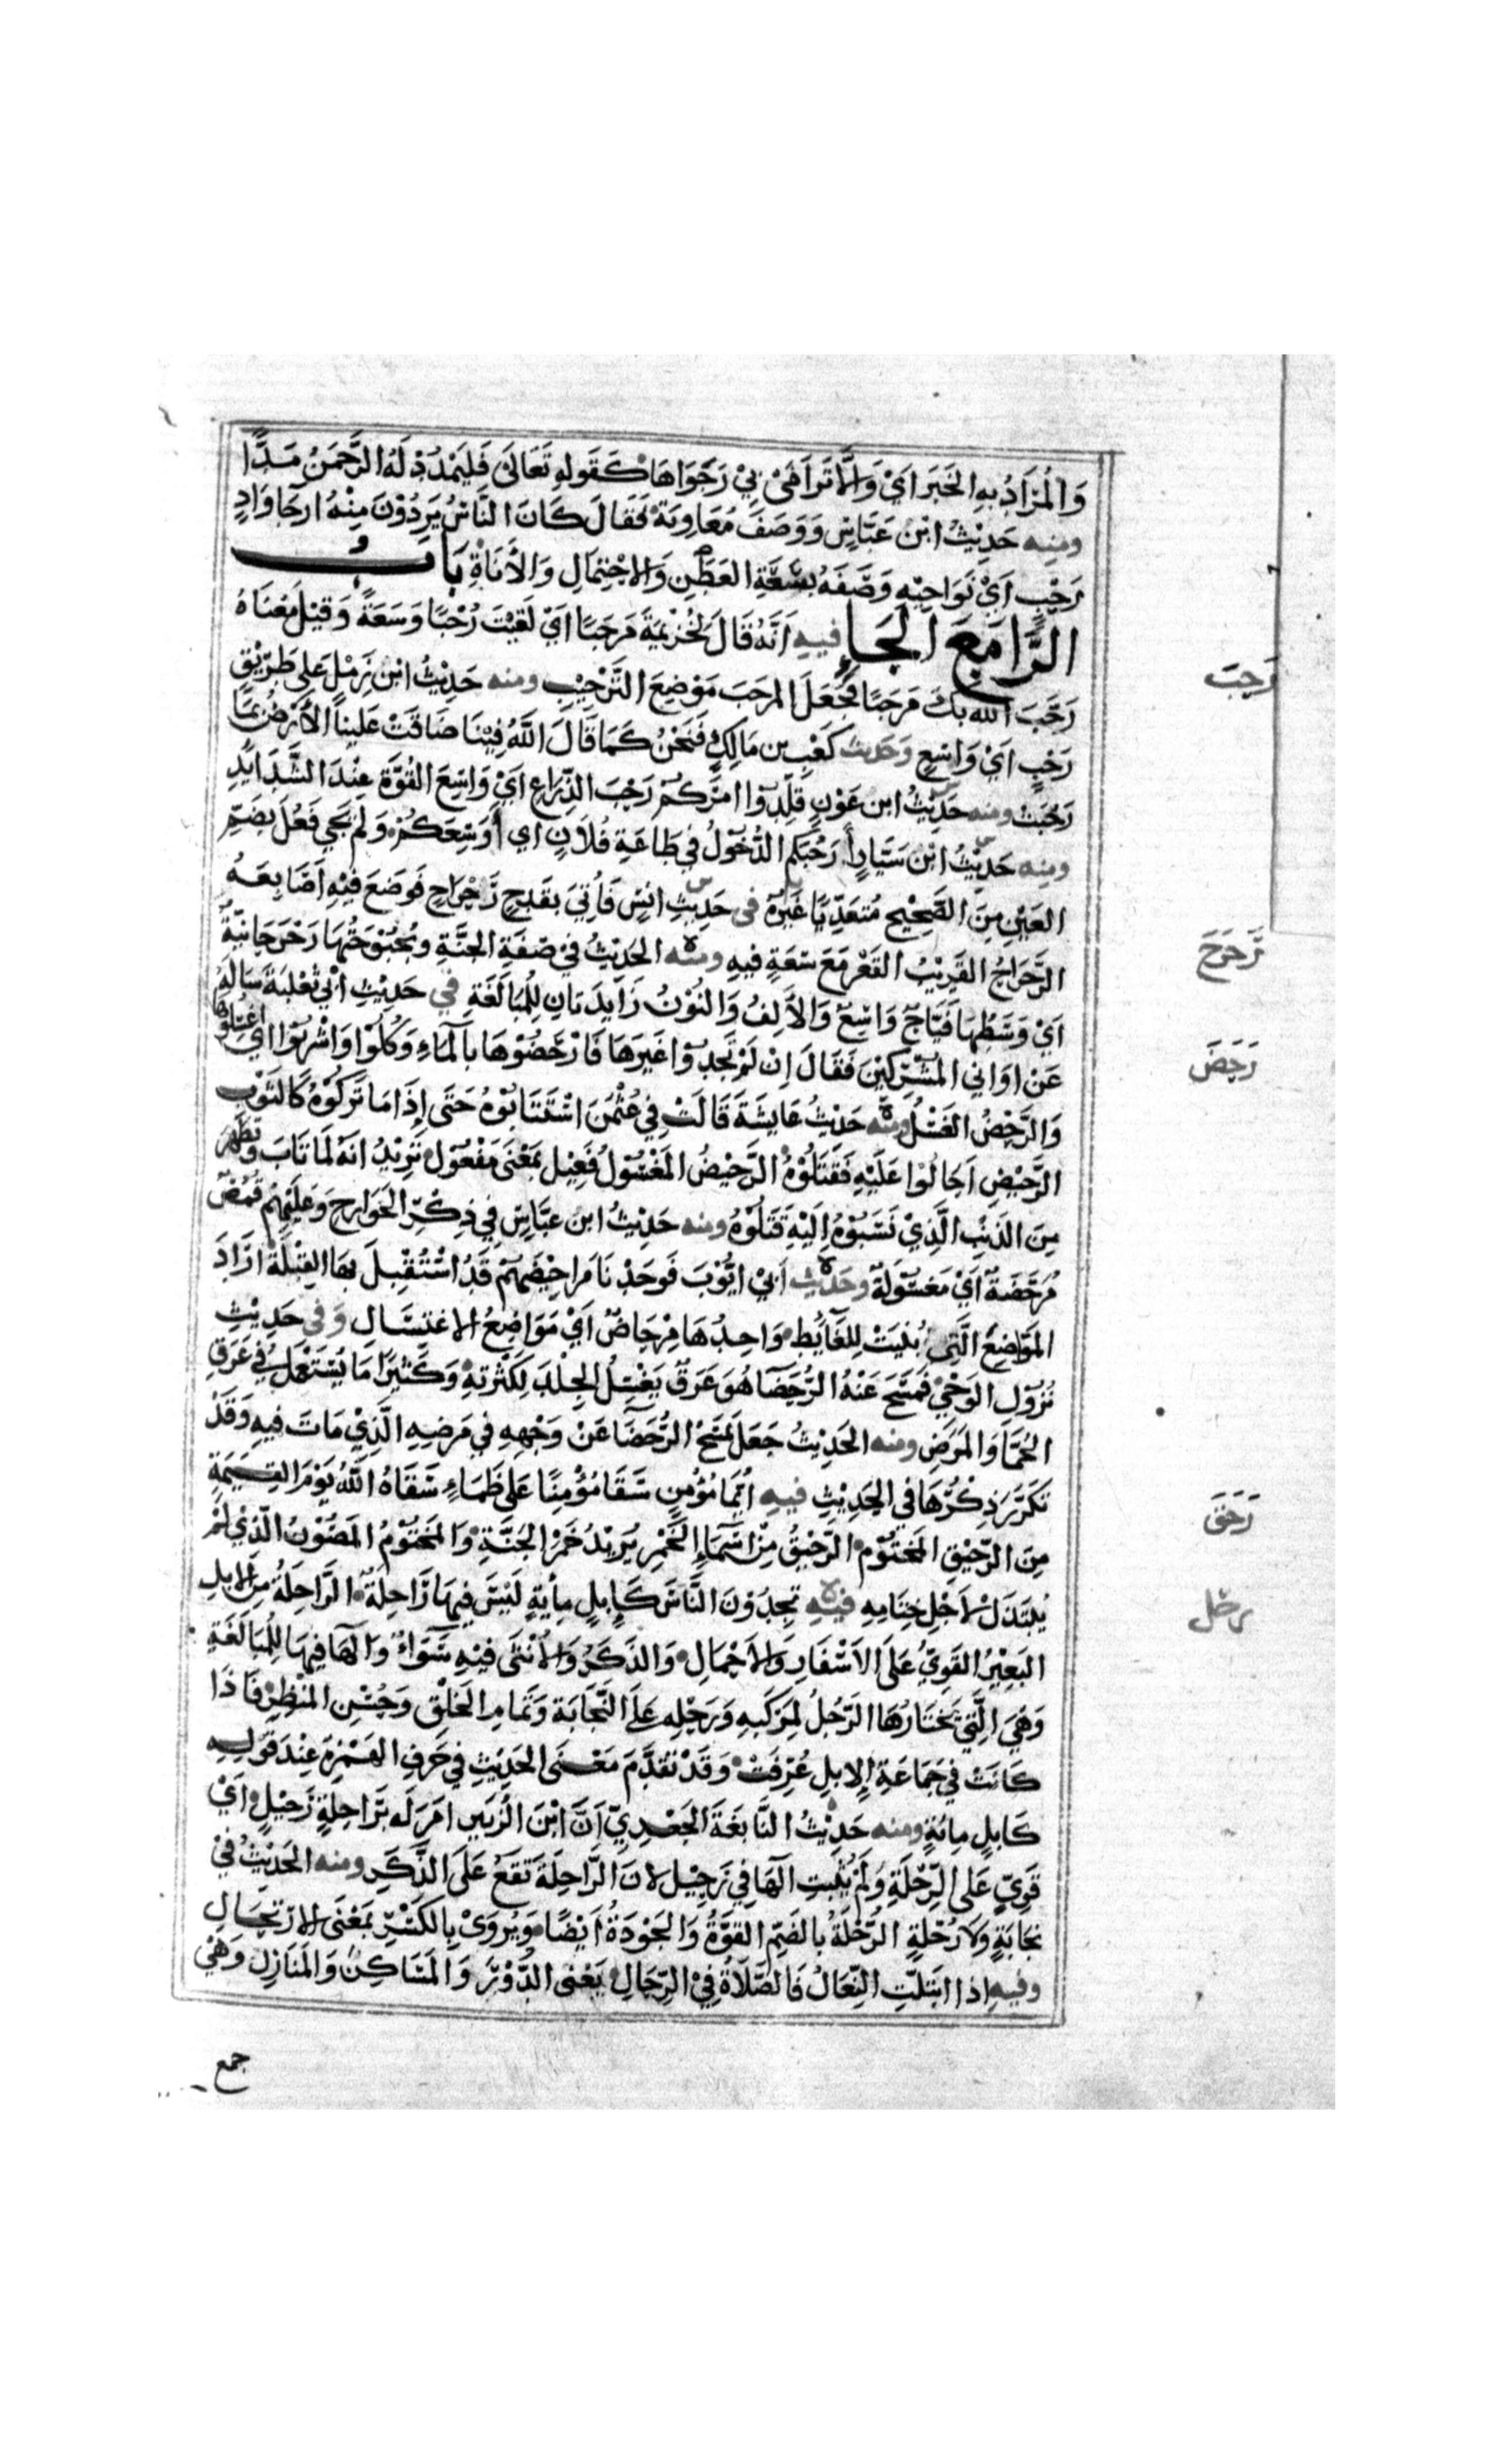 وَالْمُرَادُ بِهِ الخَبَرَ اَيْ وَاِلَّا تَرَامَىٰ بِيْ رَجَوَاهَا كَقَولِهِ تَعَالَىٰ فَلْيَمْدُدْ لَهُ الرَّحْمَنُ مَدًّا
ومنه حَدِيْثُ ابْنُ عَبَّاسٍ وَوَصَفَ مُعَاوِيَةَ فَقَالَ كَانَ النَّاسُ يَرِدُوْنَ مِنْهُ ارجَاوَادٍ
رَحْبٍ اَيْ نَوَاحِيْهِ وَصَفَهُ بِسَعَةِ العَطَنِ وَالاِحْتِمَالِ وَالأَنَاةِ بَابُ
الرَّا مَعَ الحَاءِ فيه اَنَّهُ قَالَ لِخُزَيْمَةَ مَرحَبًا اَيْ لَقِيْتَ رُحْبًا وَسَعَةً وَقِيْلَ مَعْنَاهُ
رَحَّبَ اللّٰه بِكَ مَرحَبًا فَجَعَلَ المَرحَبَ مَوْضِعَ التَّرْحِيْبِ ومنه حَدِيْثُ ابْنِ زِمْلٍ عَلى طَرِيْقٍ
رَحْبٍ اَيْ وَاسِعٍ وَحَديث كَعْبِ بن مَالِكٍ فَنَحْنُ كَمَا قَالَ اللّٰهُ فِيْنَا ضَاقَتْ عَلَيناَ الأَرْضُ بِمَا
رَحُبَتْ ومنه حَدِيْثُ ابن عَوْفٍ قَلِّدُوا امْرَكُمْ رَحْبَ الذِّرَاعِ اَيْ وَاسِعَ القُوَّةِ عِنْدَ الشَّدَايِدِ
ومنه حَدِيْثُ ابْن سَيَّارٍ أَرَحُبَكُم الدُّخُوْلُ فِي طَاعَةِ فُلَانٍ اي أَوَسِعَكُمْ وَلَمْ يَجِي فَعُلَ بِضَمِّ
العَيْنِ مِنَ الصَّحِيْحِ مُتَعَدِّيًا غَيْرُهُ فى حَدِيْثِ انَسٍ فَأُتِيَ بِقَدَحٍ رَحْرَاحٍ فَوَضَعَ فِيْهِ اَصَابِعَهُ
الرَّحْرَاحُ القَرِيْبُ القَعْرِ مَعَ سَعَةٍ فِيهِ ومنه الحَدِيْثُ فِيْ صِفَةِ الجَنَّةِ وبُحْبُوْحَتُهَا رَحْرَحَانِيَّةٌ
اَيْ وَسَطُهَا فَيَّاحٌ وَاسِعٌ وَالأَلِفُ وَالنُّوْنُ زَايِدَتَانِ لِلْمُبَالَغَةِ في حَدِيْثِ أَبِي ثَعْلَبَةَ سَالَهُ
عَنْ اوَانِي المُشْرِكِيْنَ فَقَالَ اِنْ لَمْ تَجِدُوْا غَيْرَهَا فَارْحَضُوْهَا بِالْمَاءِ وَكُلُوْا وَاشْرَبُوْا اي اغْسِلُوْهَا
وَالرَّحْضُ الغَسْلُ ومنه حَدِيْثُ عَايِشَةَ قَالَتْ فِي عُثْمٰنَ اسْتَتَابُوْهُ حَتَى إِذَا مَا تَرَكُوْهُ كَالثَّوْبِ
الرَّحِيْضِ اَحَالُوْا عَلَيْهِ فَقَتَلُوْهُ الرَّحِيْضُ المَغْسُوْلُ فَعِيْل بمَعْنَى مَفْعُوْلٍ تُرِيْدُ انَّهُ لَمَا تَابَ وَتَطَهَّرَ
مِنَ الذَنْبِ الَّذِيْ نَسَبُوْهُ اِلَيْهِ قَتَلُوْهُ ومنه حَدِيْثُ ابْنُ عَبَّاسٍ فِي ذِكْرِ الخَوَارِجِ وَعَلَيْهِمْ قُمُصٌ
مُرَحَّضَةٌ اَيْ مَغسُوْلَةٌ وحَدِيْثِ اَبِيْ ايُّوْبَ فَوَجَدْنَا مَرَاحِيْضَهُمْ قَدُ اسْتُقْبِلَ بِهَا القِبْلَةُ ارَادَ
المَوَاضِعَ الَّتِي بُنِيَتْ لِلغَائِطِ وَاحِدُهَا مِرْحَاضٌ اَيْ مَوَاضِعُ الاغتِسَالِ وَفى حَدِيْثِ
نُزُوْلِ الوَحْيِ فَمَسَحَ عَنْهُ الرُّحَضَا هُوَ عَرَقٌ يَغْسِلُ الجِلْدَ لِكَثْرَتِهِ وَكَثِيْرًا مَا يُسْتَعْمَلُ فِي عَرَقِ
الحُمَّا وَالمَرَضِ ومنه الحَدِيْثُ جَعَلَ يَمْسَحُ الرُّحَضَا عَنْ وَجْهِهِ فِي مَرضِهِ الَّذِيْ مَاتَ فِيهِ وَقَدْ
تَكَرَّرَ ذِكْرُهَا فِي الحَدِيْثِ فيه اَيُّمَا مُؤْمِنٍ سَقَا مُؤْمِنًا عَلى ظَمَاءٍ سَقَاهُ اللّٰهُ يَوْمَ القِيٰمَةِ
مِنَ الرَّحِيْقِ المَخْتُوْمِ الرَّحِيْقُ مِنْ اسْمَاءِ الخَمْرِ يُرِيْدُ خَمْرَ الجَنَّةِ وَالمَخْتُوْمُ المَصُوْنُ الَّذِي لَمْ
يُبْتَذَلْ لاَجْلِ خِتَامِهِ فيه تَجِدُوْنَ النَّاسَ كَاِبِلٍ مِأَيةٍ لَيْسَ فِيهَا رَاحِلَةٌ الرَّاحِلَةُ مِنَ الاِبِلِ
البَعِيْرُ القَوِيُّ عَلَى الاَسْفَارِ وَالاَحْمَالِ وَالذَّكَرُ وَالأُنْثَى فِيْهِ سَوَاءٌ وَالهَا فِيْهَا لِلمُبَالَغَةِ
وَهِيَ الَّتِيْ يَخْتَارُهَا الرَّجُلُ لِمَرْكَبِهِ وَرَحْلِهِ عَلَى النَّجَابَةِ وَتَمَامِ الخَلْقِ وَحُسْنِ المَنْظَرِ فَاذَا
كَانَتْ فِيْ جَمَاعَةِ الاِبِلِ عُرِفَتْ وَقَدْ تَقَدَّمَ مَعْنَى الحَدِيْثِ فِي حَرفِ الهَمْزَةِ عِنْدَ قَوْلِهِ
كَابِلٍ مِائَةٍ ومنه حَدِيْثُ النَّابِغَةَ الجَعْدِيّ اَنَّ ابْنَ الزُّبَيرِ امَرَ لَه بَرَاحِلَةٍ رَحِيْلٍ اَيْ
قَوِيٍّ عَلَى الرِّحْلَةِ وَلَمْ يُثْبِتِ الهَا فِي رَحِيْل لانَ الرَّاحِلَةَ تَقَعُ عَلَى الذَّكَرِ ومنه الحَدِيْثُ فِيْ
نَجَابَةٍ وَلَا رُحْلَةٍ الرُّحْلَةُ بالضَمِّ القُوَّةُ وَالجَوْدَةُ اَيْضًا وَيُروَىْ بِالكَسْرِ بمَعْنَى الارْتِحَالِ
وفيه اِذا ابْتَلَّتِ النِّعَالُ فَالصَّلَاةُ فِيْ الرِّحَالِ يَعْنى الدُّوْرَ وَالمَسَاكِنَ وَالمَنَازِلَ وَهْيَ
رَحَبَ
رَحرَحَ
رَحَضَ
رَحَقَ
رحل
جمع